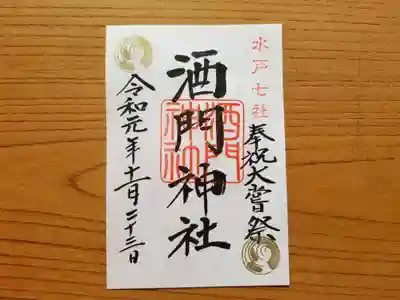 水戸七社
奉祝大嘗祭
酒門神社
酒門神社
令和元年十一月二十三日